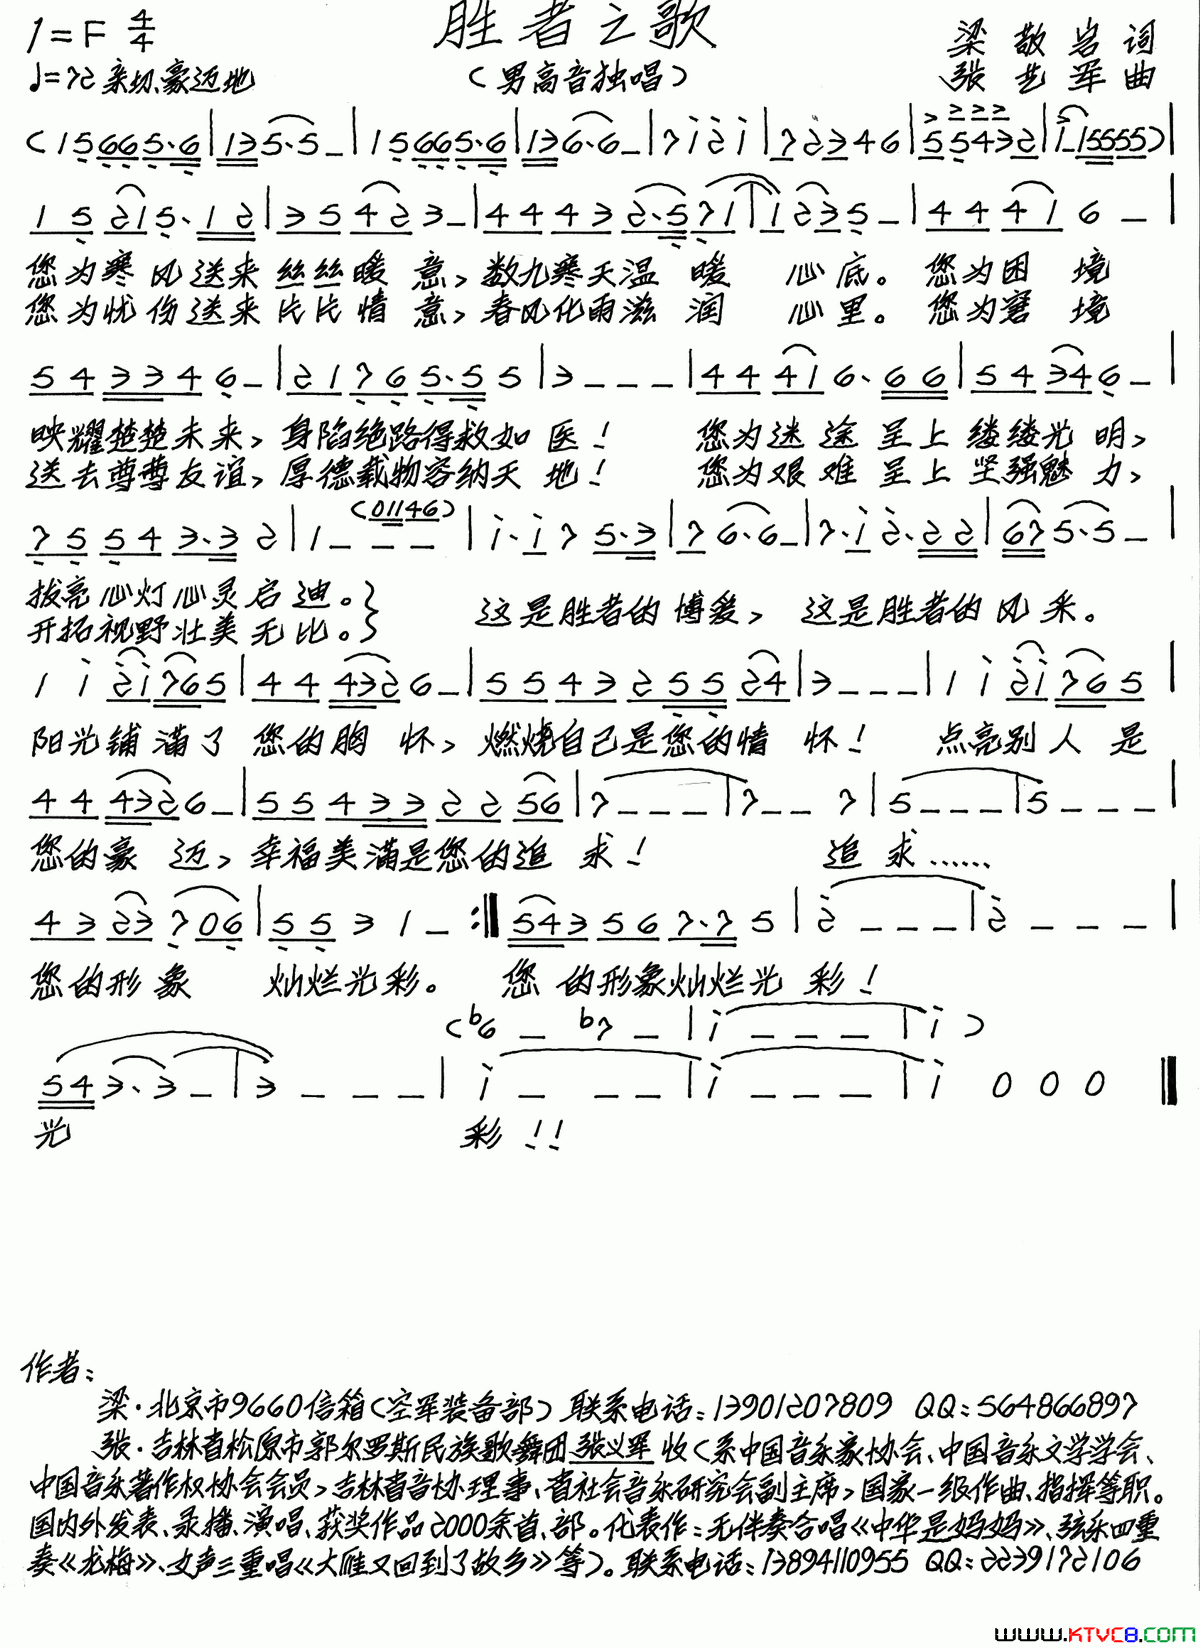 胜者之歌
1=F 4/4
（男高音独唱）
梁敬岩 词
♩=72 亲切、豪迈地
张艺军 曲
(1 5 6 6 5·6|1 3 5·5 –|1 5 6 6 5·6|1 3 6·6 –|7 i 2 i|7 2 3 4 6|5 5 4 3 2|1 1 5 5 5 5)|
1 5 2 1 5·1 2|3 5 4 2 3 –|4 4 4 3 2·5 7 1|1 2 3 5 –|4 4 4 1 6 –|
您为寒风送来丝丝暖意，数九寒天温暖心底。您为困境
您为忧伤送来片片情意，春风化雨滋润心里。您为窘境
5 4 3 3 4 6 –|2 1 7 6 5·5 5|3 – – –|4 4 4 1 6·6 6|5 4 3 4 6 –|
映耀楚楚未来，身陷绝路得救如医！您为迷途呈上缕缕光明，
送去尊尊友谊，厚德载物容纳天地！您为艰难呈上坚强魅力，
7 5 5 4 3·3 2|1 – – –(0 1 1 4 6)|i·i 7 5·3|7 6·6 –|7·i 2·2 2|6 7 5·5 –|
拔亮心灯心灵启迪。} 这是胜者的博爱，这是胜者的风采。
开拓视野壮美无比。
1 i 2 i 7 6 5|4 4 4 3 2 6 –|5 5 4 3 2 5 5 2 4|3 – – –|1 i 2 i 7 6 5|
阳光铺满了您的胸怀，燃烧自己是您的情怀！点亮别人是
4 4 4 3 2 6 –|5 5 4 3 3 2 2 5 6|7 – – –|7 – – 7|5 – – –|5 – – –|
您的豪迈，幸福美满是您的追求！追求……
4 3 2 3 7 0 6|5 5 3 1 – :‖ 5 4 3 5 6 7·7 5|2 – – –|2 – – –|
您的形象灿烂光彩。您的形象灿烂光彩！
(b6 – b7 –|i – – –|i)
5 4 3·3 –|3 – – –|i – – –|i – – –|i 0 0 0‖
光彩！！
作者：
梁·北京市9660信箱（空军装备部）联系电话：13901207809 QQ：564866897
张·吉林省松原市郭尔罗斯民族歌舞团张义军收（系中国音乐家协会、中国音乐文学学会、
中国音乐著作权协会会员，吉林省音协理事、省社会音乐研究会副主席，国家一级作曲、指挥等职。
国内外发表、录播、演唱、获奖作品2000余首、部。代表作：无伴奏合唱《中华是妈妈》、弦乐四重
奏《龙梅》、女声三重唱《大雁又回到了故乡》等）。联系电话：13894110955 QQ：2239172106
www.KTVC8.com